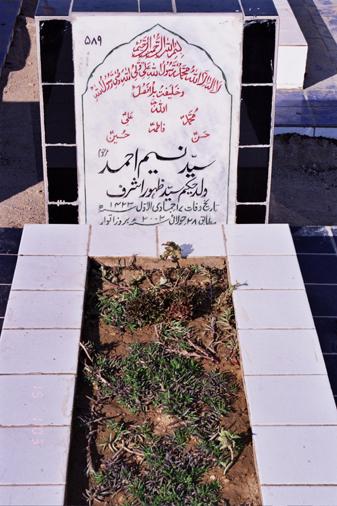 ۵۸۹
بسم اللہ الرحمن الرحیم
لا الہ الا اللہ محمد رسول اللہ علی ولی اللہ وصی رسول اللہ
وخلیفتہ بلا فصل
اللہ
محمد علی
فاطمہ
حسن حسین
سید نسیم احمد
ولد حکیم سید ظہور اشرف
تاریخ وفات ۱۷ جمادی الاول ۱۴۲۳ھ
مطابق ۲۸ جولائی ۲۰۰۲ بروز اتوار